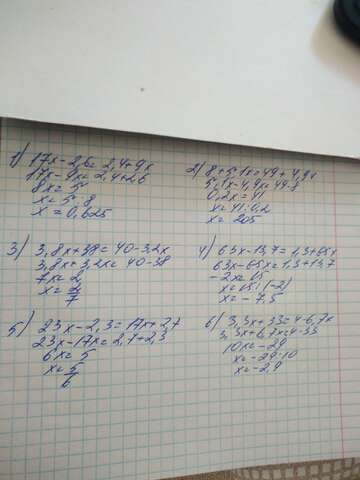 1) 17x-2,6=2,4+9x
17x-9x=2,4+2,6
8x=5
x=5:8
x=0,625
2) 8+5,1x=49+4,9x
5,1x-4,9x=49-8
0,2x=41
x=41:0,2
x=205
3) 3,8x+38=40-3,2x
3,8x+3,2x=40-38
7x=2
x=2/7
4) 63x-13,7=1,3+65x
63x-65x=1,3+13,7
-2x=15
x=15:(-2)
x=-7,5
5) 23x-2,3=17x+2,7
23x-17x=2,7+2,3
6x=5
x=5/6
6) 3,3x+33=4-6,7x
3,3x+6,7x=4-33
10x=-29
x=-29:10
x=-2,9